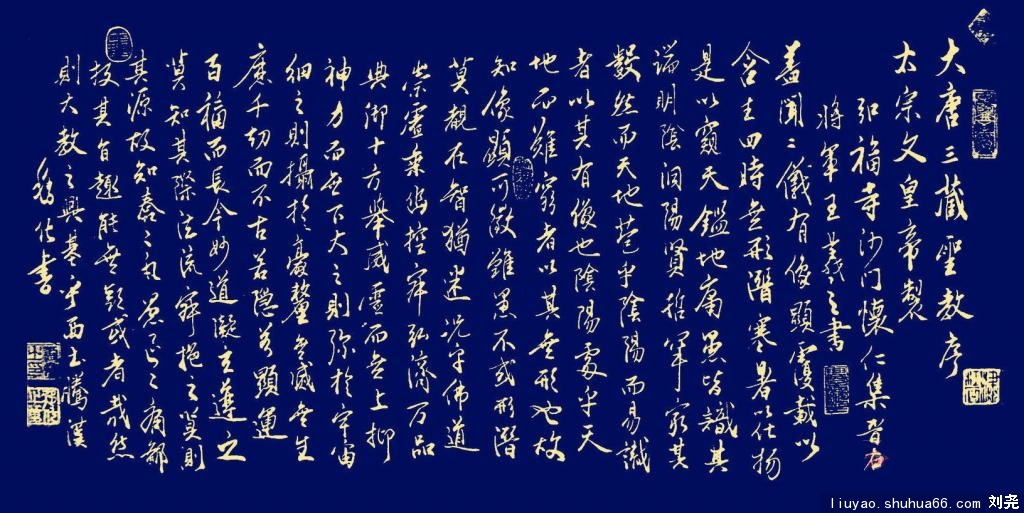 大唐三藏聖教序
太宗文皇帝製
弘福寺沙门懷仁集晉右
將軍王羲之書
蓋聞二儀有像顯覆載以
含生四時無形潛寒暑以化物
是以窺天鑑地庸愚皆識其
端明陰洞陽賢哲罕窮其
數然而天地苞乎陰陽而易識
者以其有像也陰陽處乎天
地而難窮者以其無形也故
知像顯可徵雖愚不惑形潛
莫覩在智猶迷况乎佛道
崇虛乘幽控寂弘濟万品
典御十方舉威靈而無上抑
神力而無下大之則弥於宇宙
細之則攝於毫釐無滅無生
歷千劫而不古若隱若顯運
百福而長今妙道凝玄遵之
莫知其際法流寂挹之莫則
其源故知蠢之凡愚區之庸鄙
投其旨趣能無疑惑者哉然
則大教之興基乎西土騰漢
書
liuyao.shuhua66.com 刘尧